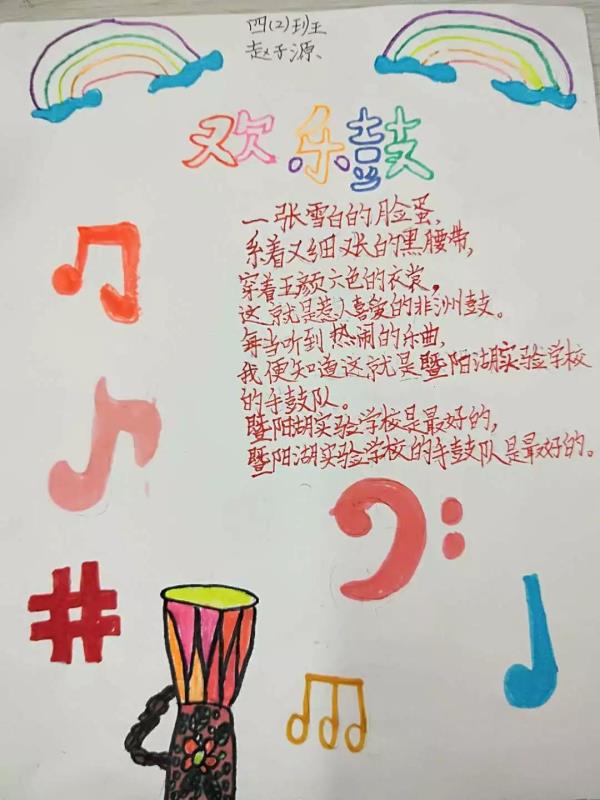 四(2)班
赵子源
欢乐鼓
一张雪白的脸蛋，
系着又细又长的黑腰带，
穿着五颜六色的衣裳，
这就是惹人喜爱的非洲鼓。
每当听到热闹的乐曲，
我便知道这就是暨阳湖实验学校
的手鼓队。
暨阳湖实验学校是最好的，
暨阳湖实验学校的手鼓队是最好的。